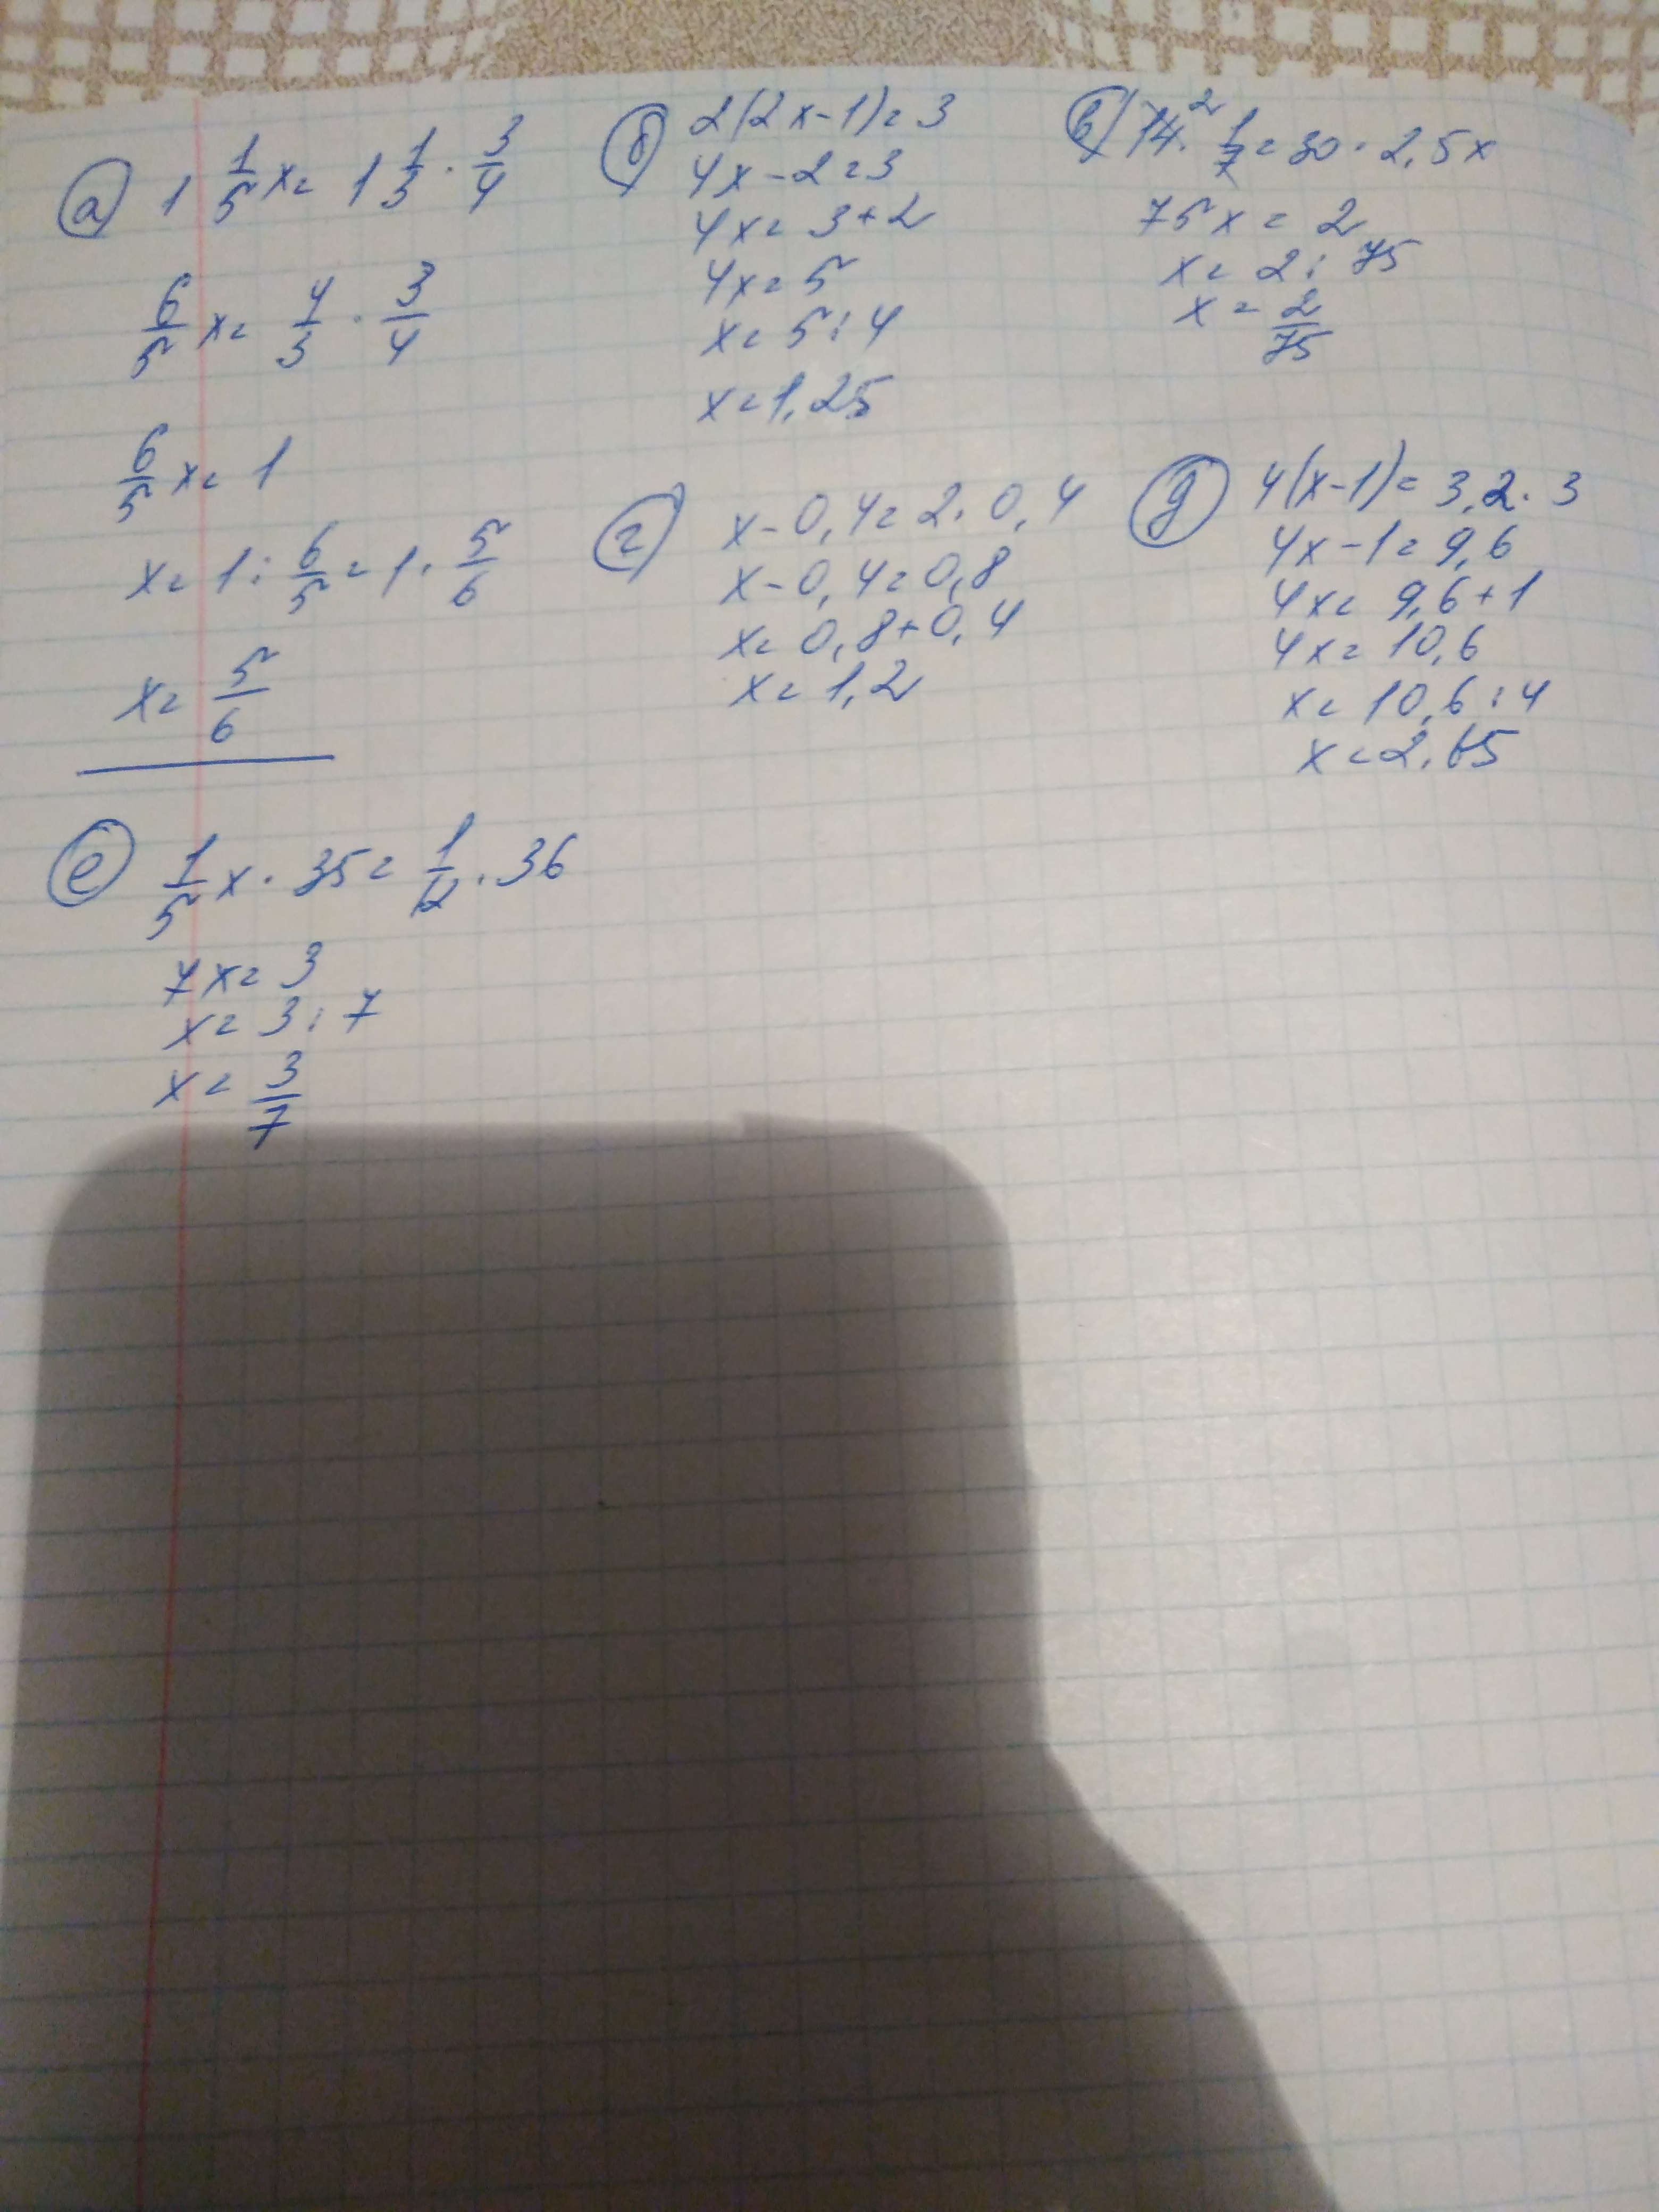 а) 1 1/5 x = 1 1/3 · 3/4
6/5 x = 4/3 · 3/4
6/5 x = 1
x = 1 : 6/5 = 1 · 5/6
x = 5/6
б) 2(2x-1) = 3
4x - 2 = 3
4x = 3+2
4x = 5
x = 5 : 4
x = 1,25
в) 14² · 1/7 = 30 · 2,5x
75x = 2
x = 2 : 75
x = 2/75
г) x - 0,4 = 2 · 0,4
x - 0,4 = 0,8
x = 0,8 + 0,4
x = 1,2
д) 4(x-1) = 3,2 · 3
4x - 1 = 9,6
4x = 9,6 + 1
4x = 10,6
x = 10,6 : 4
x = 2,65
е) 1/5 x · 35 = 1/12 · 36
7x = 3
x = 3 : 7
x = 3/7